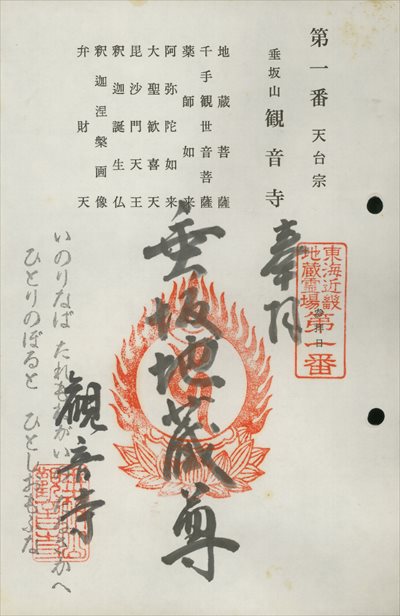 第一番 天台宗
垂坂山 観音寺
地蔵菩薩
千手観世音菩薩
薬師如来
阿弥陀如来
大聖歓喜天
毘沙門天王
釈迦誕生仏
釈迦涅槃画像
弁財天
東海近畿
地蔵霊場第一番
奉拝
月日
垂坂地蔵尊
観音寺
いのりなば たれも
かへ
ひとりのぼると ひとしおもふな